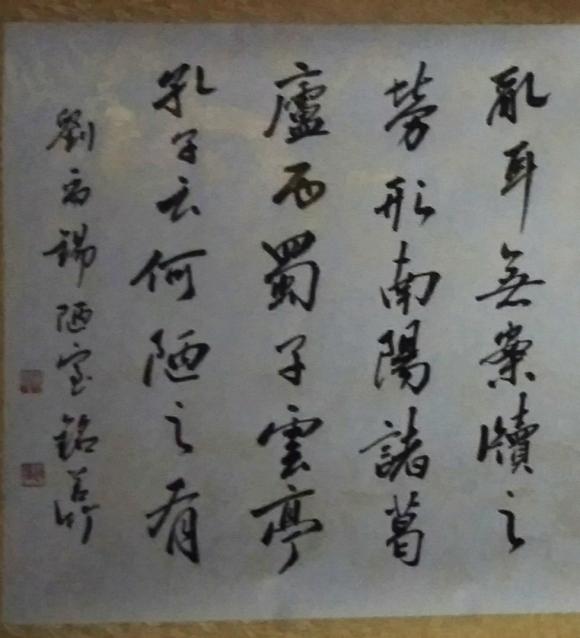 亂耳無案牘之
勞形南陽諸葛
廬西蜀子雲亭
孔子云何陋之有
劉禹錫陋室銘